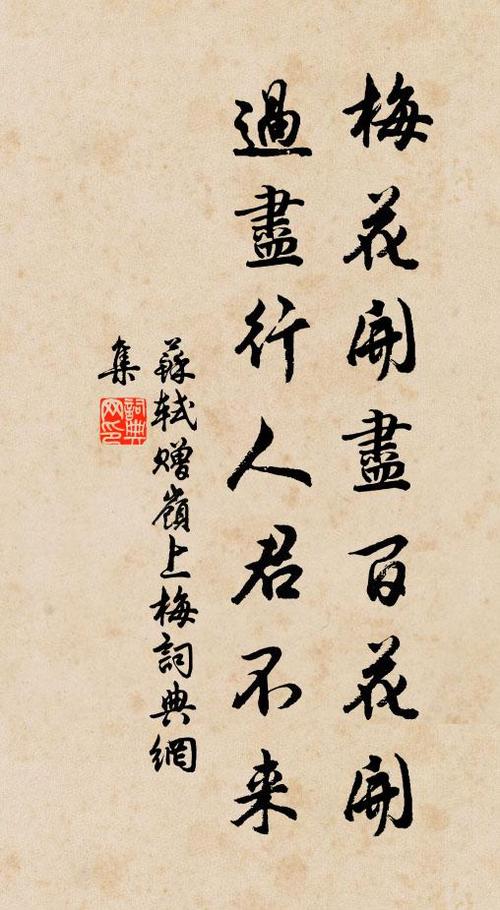 梅花開盡百花開
過盡行人君不来
蘇軾贈嶺上梅詞典網
集
詞典網印